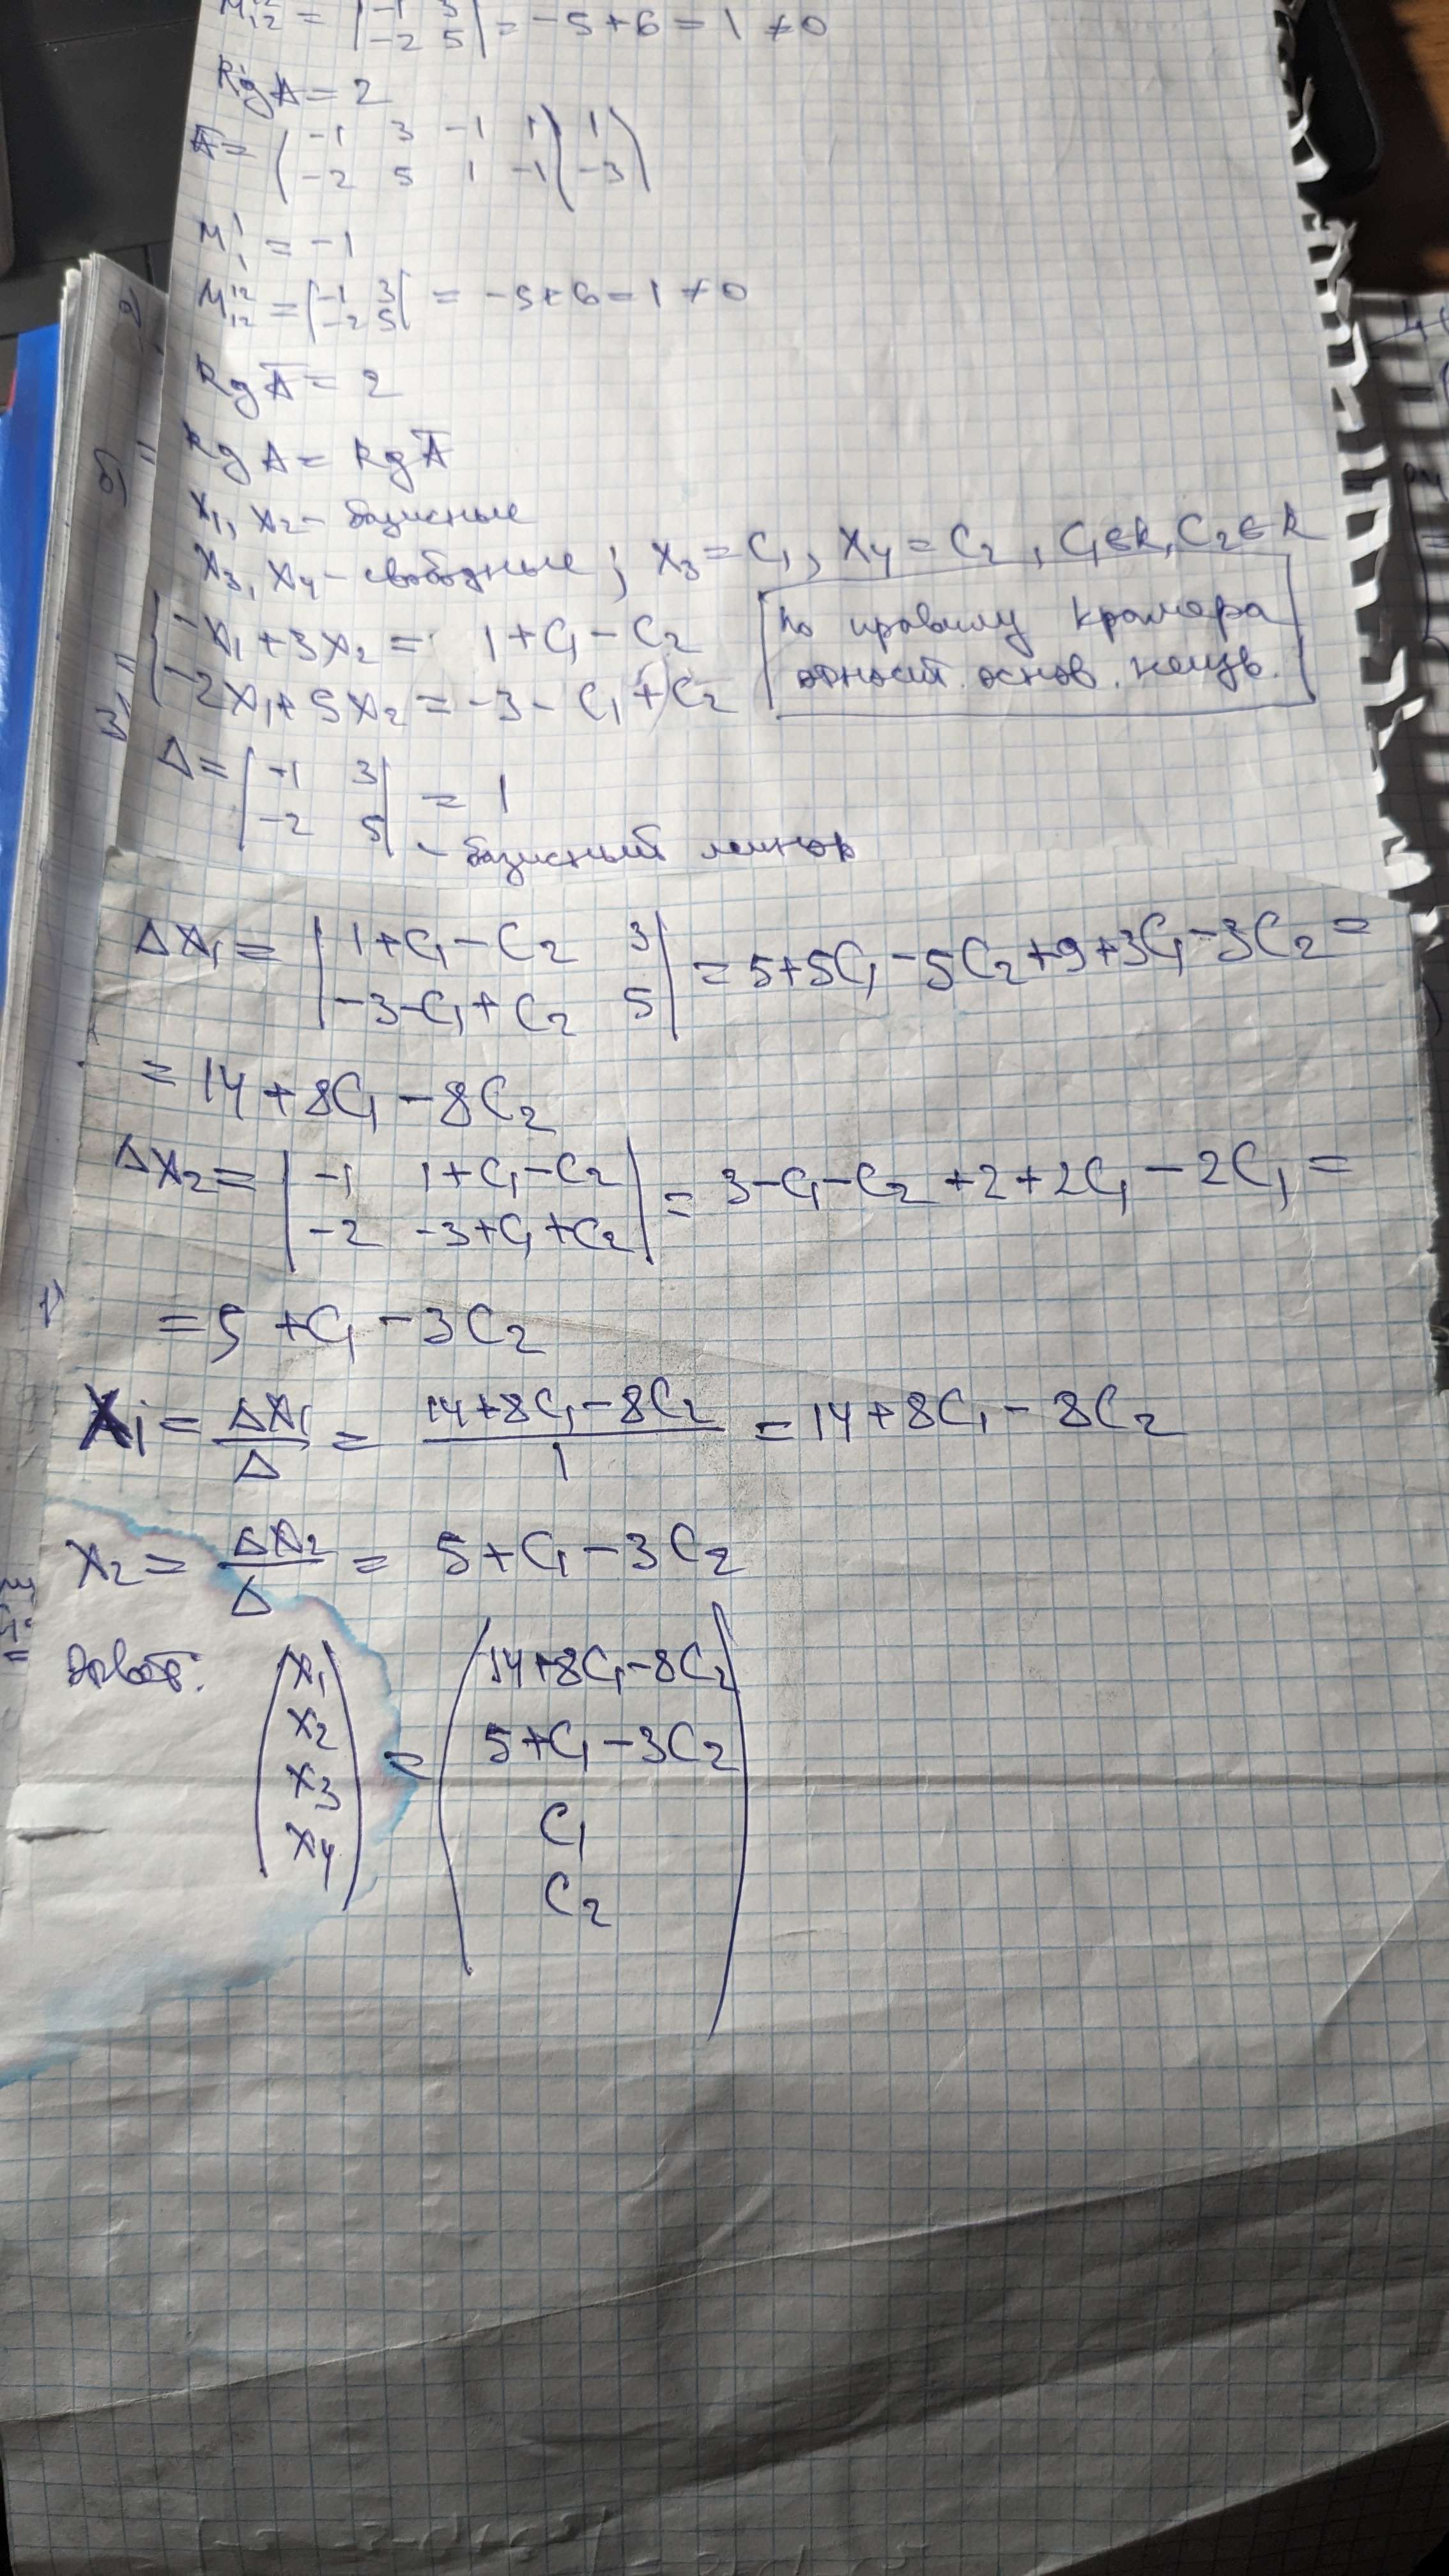 M¹²₁₂ = |-1 3; -2 5| = -5+6 = 1 ≠ 0
Rg A = 2
Ā = (-1 3 -1 1 | 1; -2 5 1 -1 | -3)
M¹₁ = -1
M¹²₁₂ = |-1 3; -2 5| = -5+6 = 1 ≠ 0
Rg Ā = 2
Rg A = Rg Ā
x₁, x₂ - базисные
x₃, x₄ - свободные ; x₃ = C₁, x₄ = C₂, C₁∈R, C₂∈R
-x₁+3x₂ = 1+C₁-C₂
-2x₁+5x₂ = -3-C₁+C₂
по правилу Крамера
относит. основ. неизв.
Δ = |-1 3; -2 5| = 1
- базисный минор
Δx₁ = |1+C₁-C₂ 3; -3-C₁+C₂ 5| = 5+5C₁-5C₂+9+3C₁-3C₂ =
= 14+8C₁-8C₂
Δx₂ = |-1 1+C₁-C₂; -2 -3+C₁+C₂| = 3-C₁-C₂+2+2C₁-2C₁ =
= 5+C₁-3C₂
x₁ = Δx₁/Δ = (14+8C₁-8C₂)/1 = 14+8C₁-8C₂
x₂ = Δx₂/Δ = 5+C₁-3C₂
Ответ:
(x₁; x₂; x₃; x₄) = (14+8C₁-8C₂; 5+C₁-3C₂; C₁; C₂)